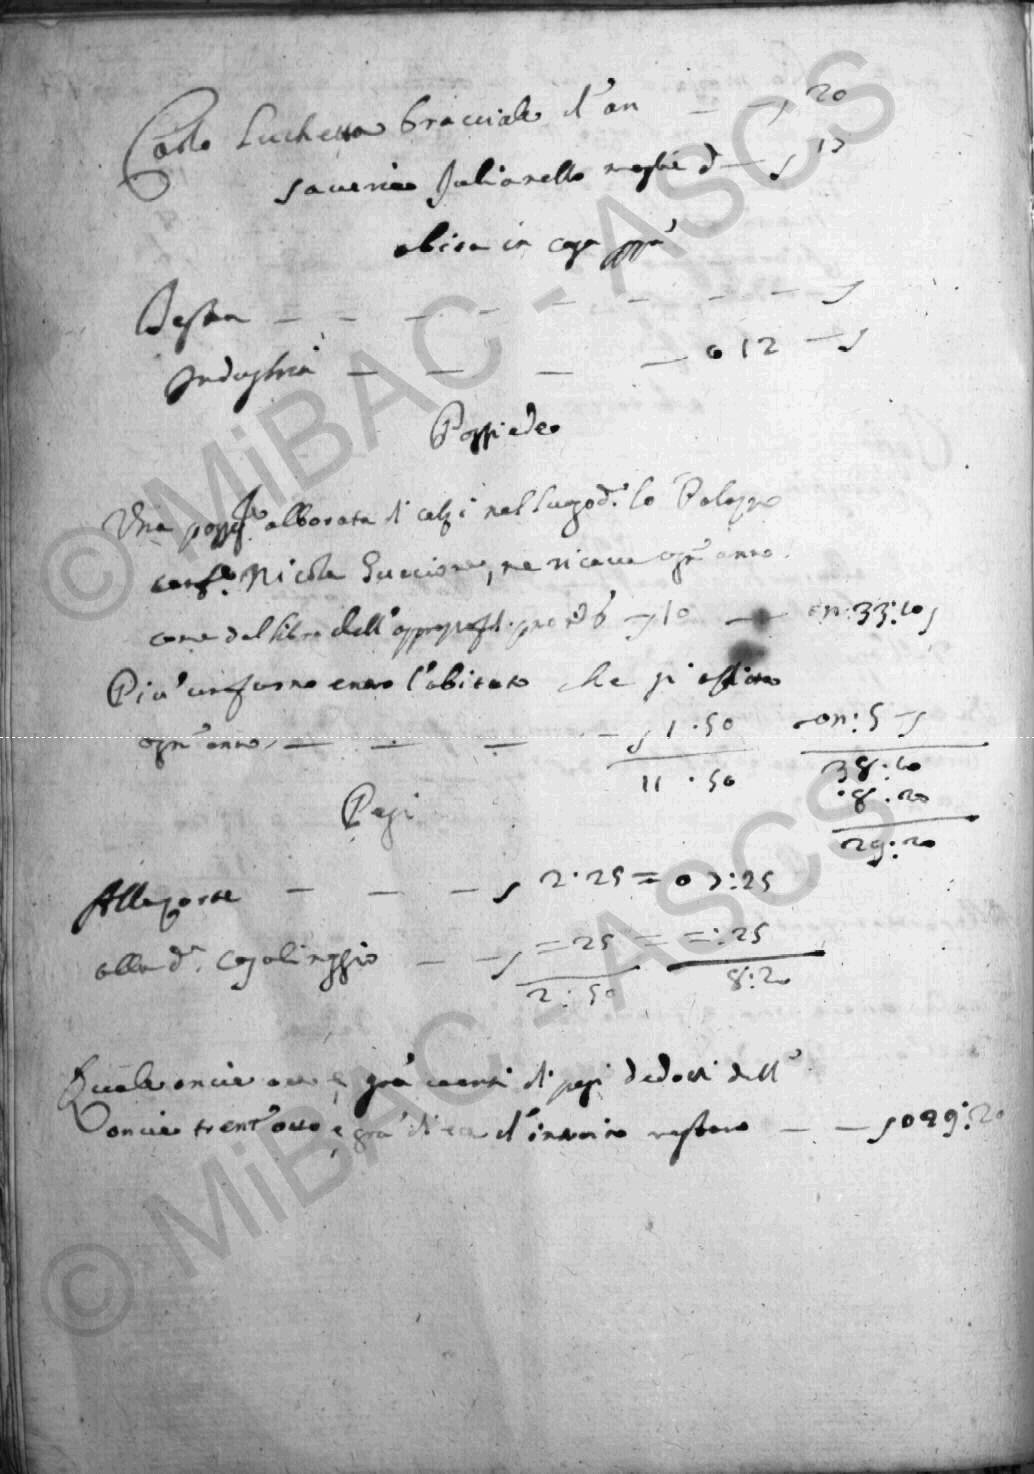 Carlo Luchetta bracciale d'an — — 20
Saveria Julianello moglie d — 17
abita in casa ppa
Testa — — — — — — — —
Industria — — — — 012 —
Possiede
Una alborata di celzi nel luogo d.o lo Palazzo
conf.e Nicola Guccione, ne ricava ogn'anno
come dal libro dell' — 10 — on: 33:10
Più un furno entro l'abitato che si affitta
ogn'anno — — — — 1.50 on: 5
11.50 38:10
8.20
29:20
Pesi
Alla — — — 2.25 = 07:25
alla d.a — — = 25 = =:25
2:50 8:20
Quale oncie otto e grà venti di pesi dedotti dall'
oncie trent'otto e grà dieci d'introito restano — — 029:20
© MiBAC - ASCS
© MiBAC - ASCS